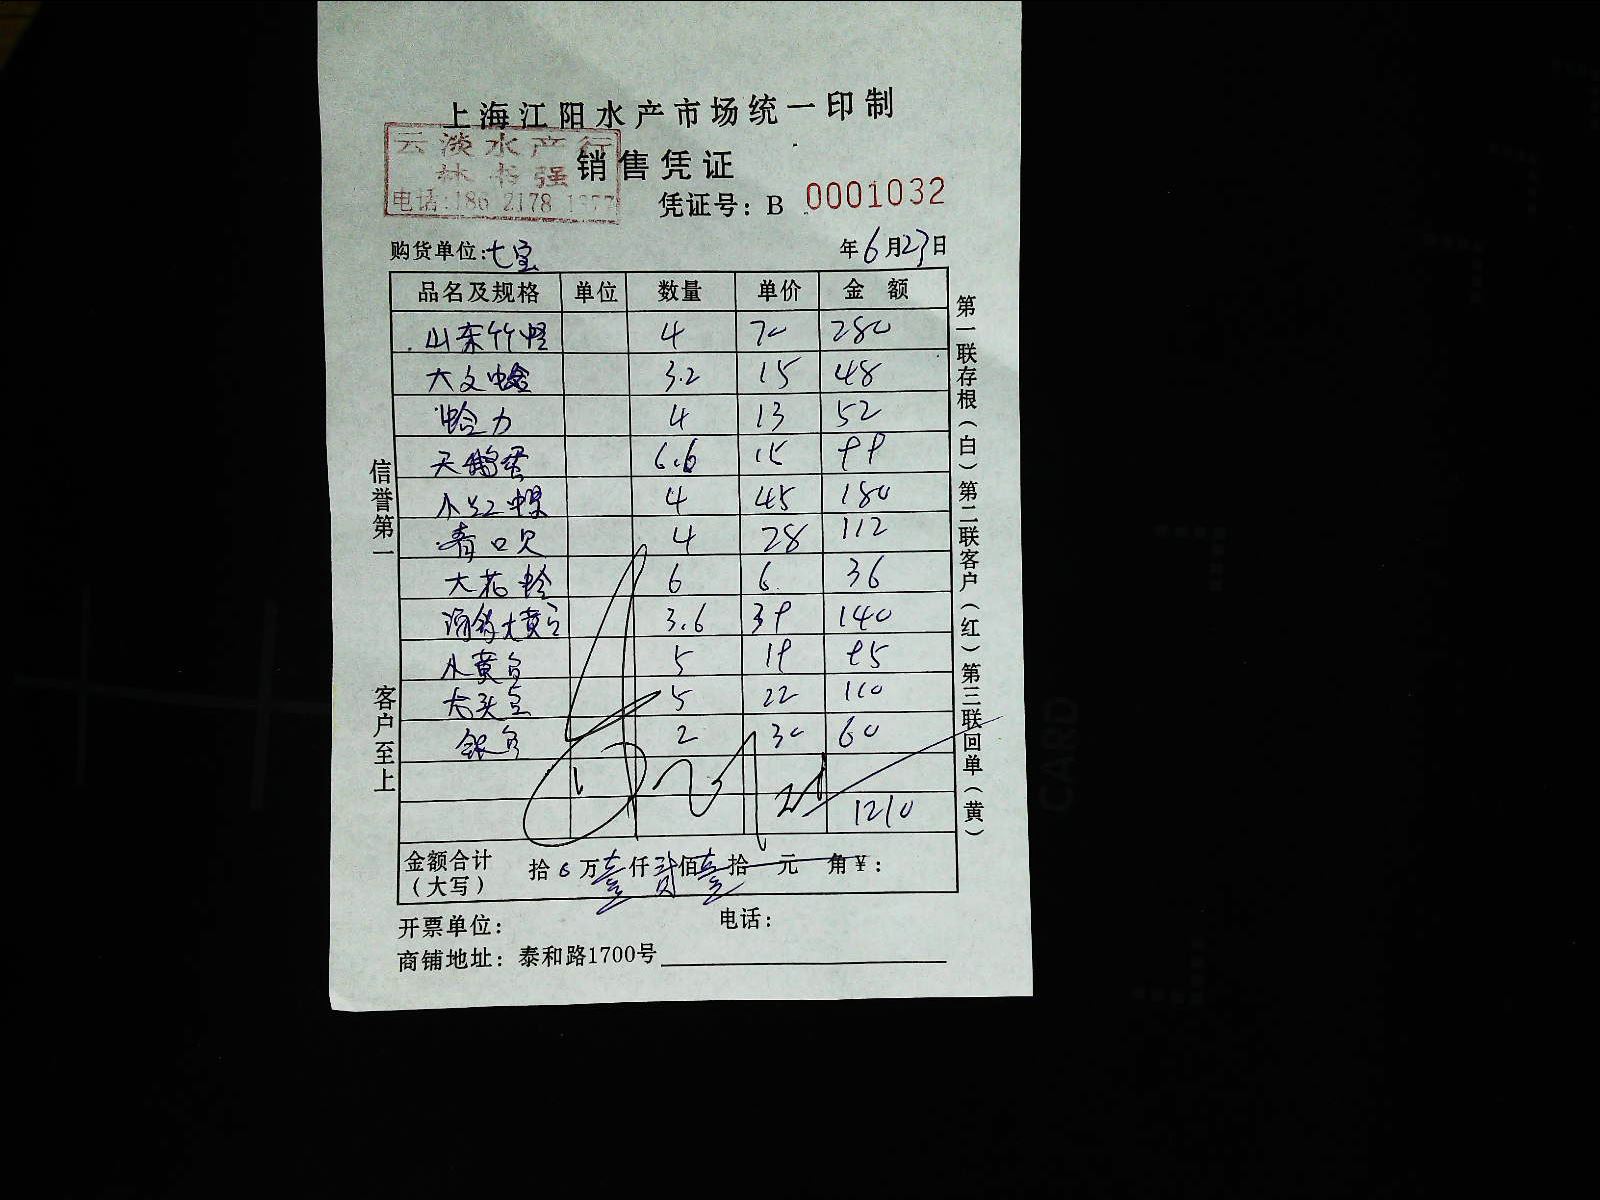 上海江阳水产市场统一印制
云淡水产行
林书强
电话:186 2178 1377
销售凭证
凭证号: B 0001032
购货单位:七宝 年6月23日
品名及规格 单位 数量 单价 金额
山东竹蛏 4 70 280
大文蛤 3.2 15 48
蛤力 4 13 52
天鹅蛋 6.6 15 99
小红螺 4 45 180
青口贝 4 28 112
大花蛤 6 6 36
大黄鱼 3.6 39 140
小黄鱼 5 19 95
大头鱼 5 22 110
银鱼 2 30 60
1210
金额合计(大写) 拾 万壹仟贰佰壹拾 元 角¥:
开票单位: 电话:
商铺地址: 泰和路1700号
信誉第一 客户至上
第一联存根(白)第二联客户(红)第三联回单(黄)
CARD